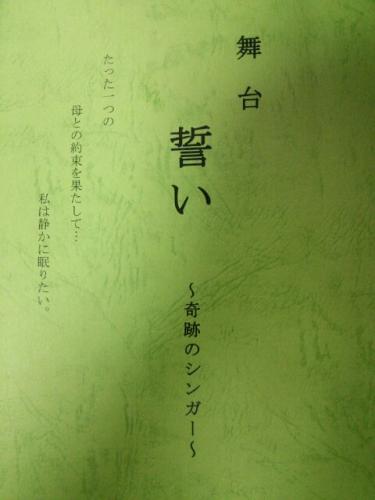 舞台
誓い
～奇跡のシンガー～
たった一つの
母との約束を果たして…
私は静かに眠りたい。